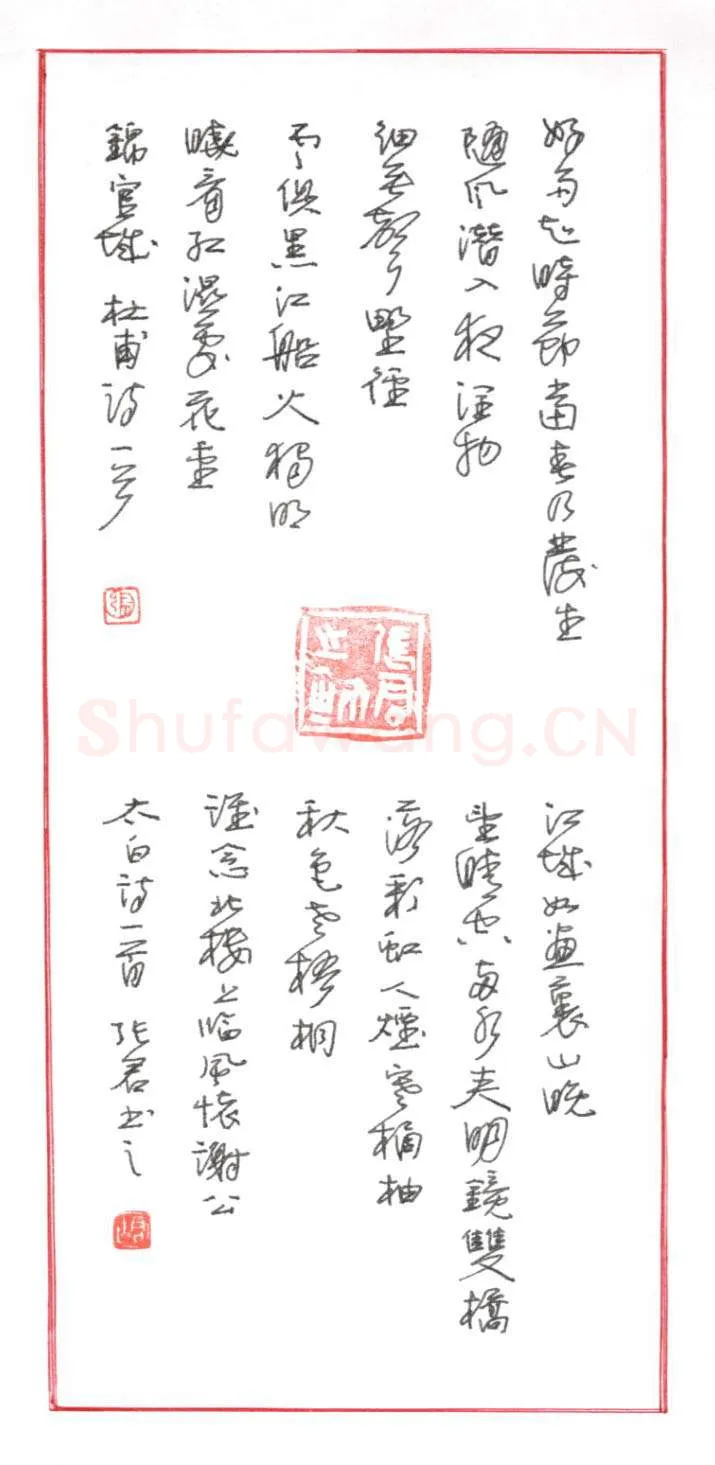 好雨知時節當春乃發生
隨風潛入夜潤物
細無聲野徑
雲俱黑江船火獨明
曉看紅濕處花重
錦官城 杜甫詩一首
Shufawang.CN
江城如畫裏山晚
望晴空兩水夾明鏡雙橋
落彩虹人煙寒橘柚
秋色老梧桐
誰念北樓上臨風懷謝公
太白詩一首 張君書之